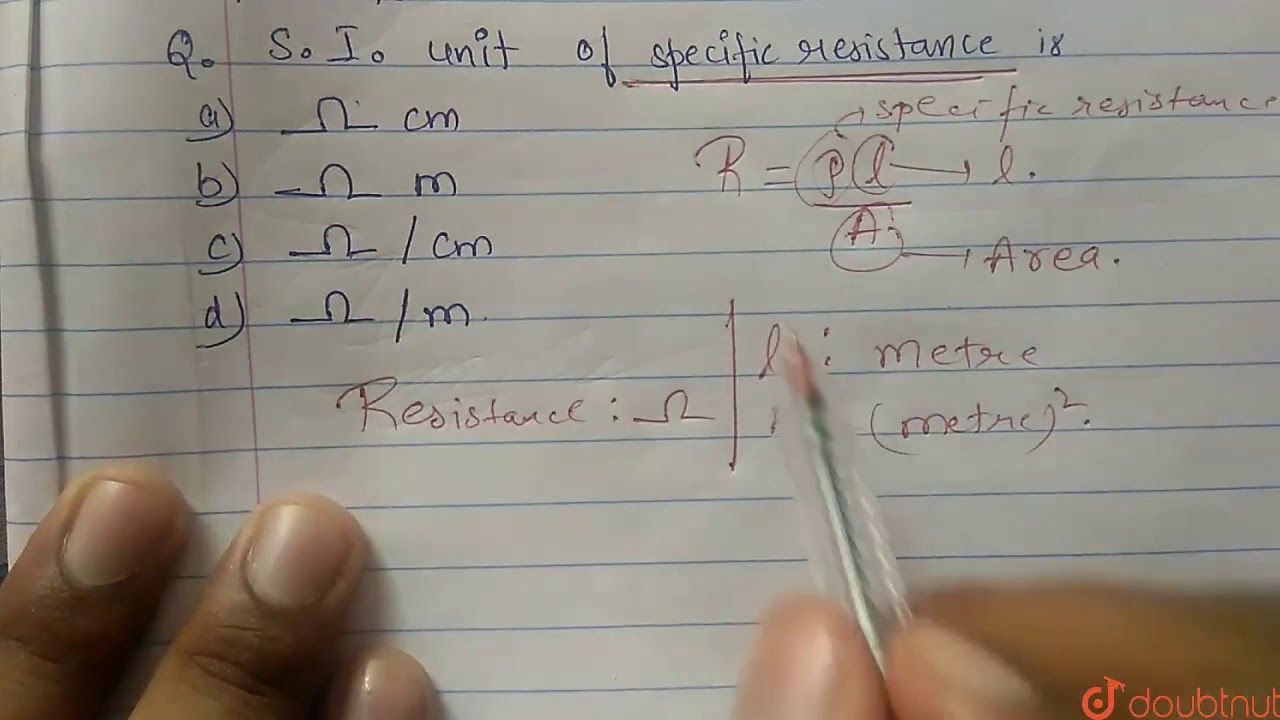 Q. S.I. unit of specific resistance is
a) Ω cm
b) Ω m
c) Ω / cm
d) Ω / m.
specific resistance
R = ρl / A → l.
→ Area.
Resistance : Ω
l : metre
(metre)².
doubtnut